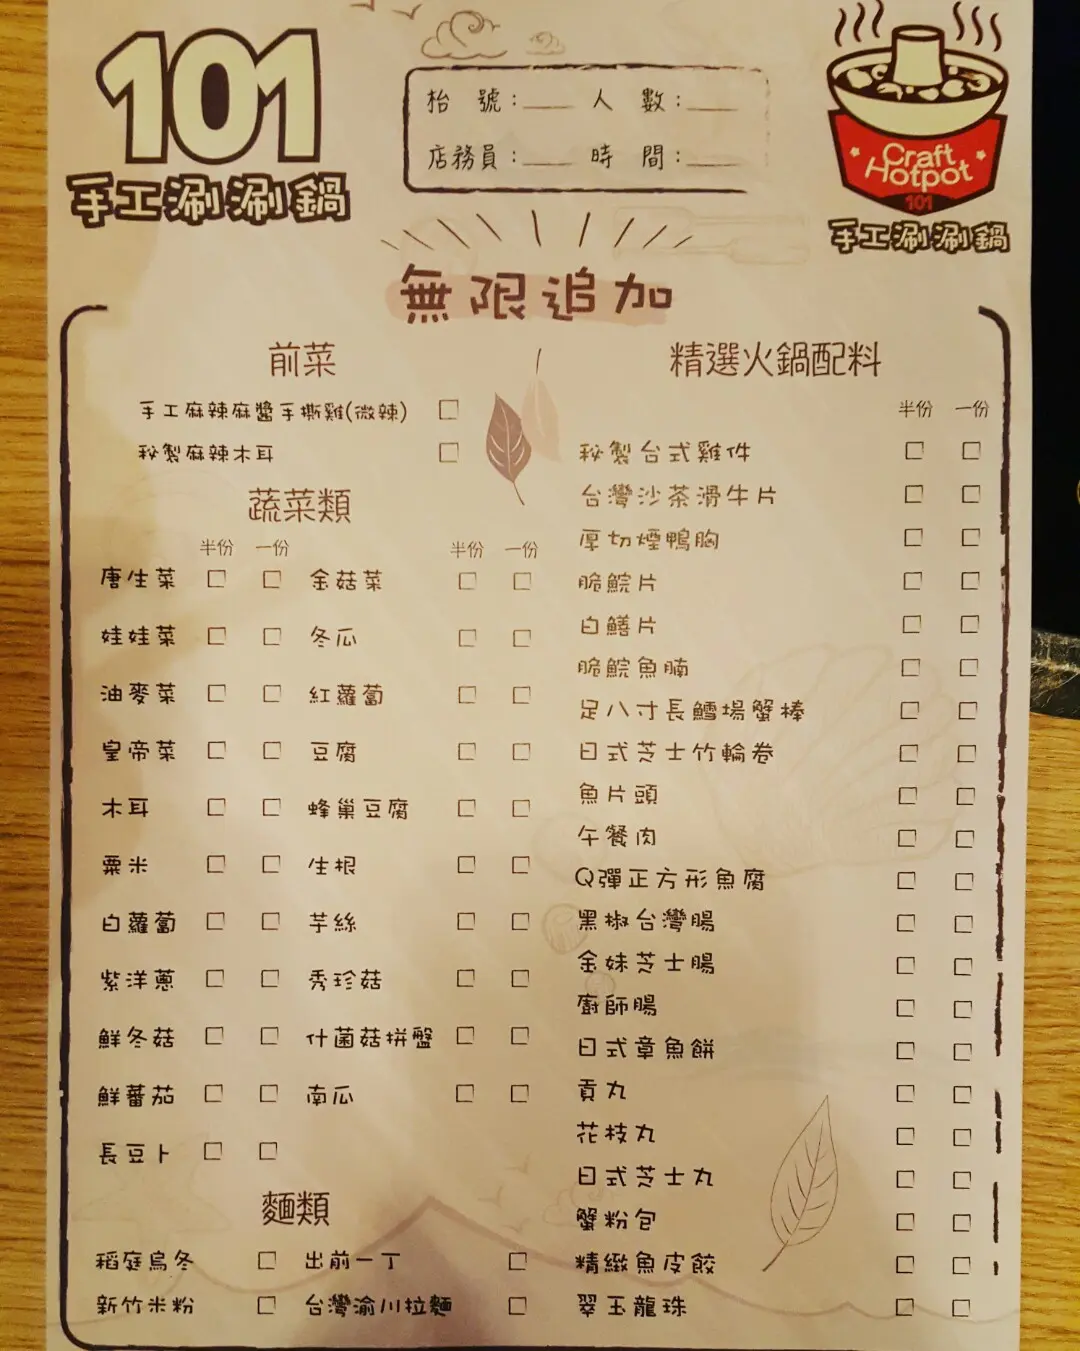 101
手工涮涮鍋
枱號：___ 人數：___
店務員：___ 時間：___
Craft
Hotpot
101
手工涮涮鍋
無限追加
前菜
手工麻辣麻醬手撕雞(微辣)
秘製麻辣木耳
蔬菜類
半份 一份 半份 一份
唐生菜 金菇菜
娃娃菜 冬瓜
油麥菜 紅蘿蔔
皇帝菜 豆腐
木耳 蜂巢豆腐
粟米 生根
白蘿蔔 芋絲
紫洋蔥 秀珍菇
鮮冬菇 什菌菇拼盤
鮮蕃茄 南瓜
長豆卜
麵類
稻庭烏冬 出前一丁
新竹米粉 台灣渝川拉麵
精選火鍋配料
半份 一份
秘製台式雞件
台灣沙茶滑牛片
厚切煙鴨胸
脆鯇片
白鱔片
脆鯇魚腩
足八寸長鱈場蟹棒
日式芝士竹輪卷
魚片頭
午餐肉
Q彈正方形魚腐
黑椒台灣腸
金妹芝士腸
廚師腸
日式章魚餅
貢丸
花枝丸
日式芝士丸
蟹粉包
精緻魚皮餃
翠玉龍珠